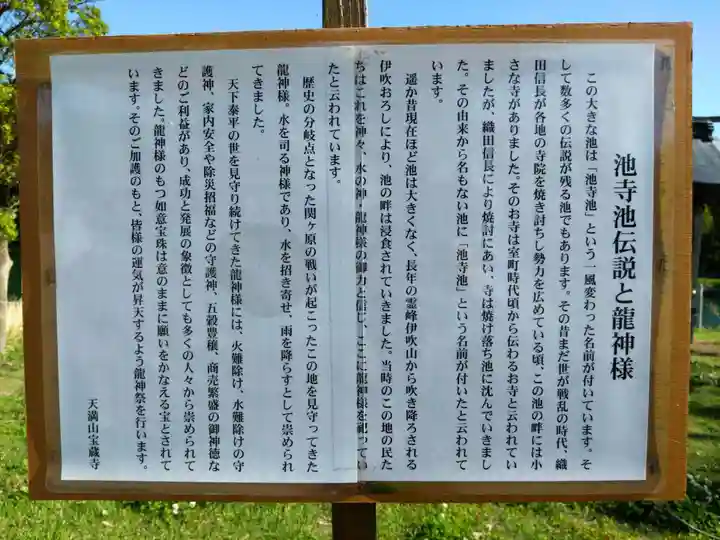 池寺池伝説と龍神様
この大きな池は「池寺池」という一風変わった名前が付いています。そ
して数多くの伝説が残る池でもあります。その昔まだ世が戦乱の時代、織
田信長が各地の寺院を焼き討ちし勢力を広めている頃、この池の畔には小
さな寺がありました。そのお寺は室町時代頃から伝わるお寺と云われてい
ましたが、織田信長により焼討にあい、寺は焼け落ち池に沈んでいきまし
た。その由来から名もない池に「池寺池」という名前が付いたと云われて
います。
遥か昔現在ほど池は大きくなく、長年の霊峰伊吹山から吹き降ろされる
伊吹おろしにより、池の畔は浸食されていきました。当時のこの地の民た
ちはこれを神々、水の神・龍神様の御力と信じ、ここに龍神様を祀ってい
たと云われています。
歴史の分岐点となった関ヶ原の戦いが起こったこの地を見守ってきた
龍神様。水を司る神様であり、水を招き寄せ、雨を降らすとして崇められ
てきました。
天下泰平の世を見守り続けてきた龍神様には、火難除け、水難除けの守
護神、家内安全や除災招福などの守護神、五穀豊穣、商売繁盛の御神徳な
どのご利益があり、成功と発展の象徴としても多くの人々から崇められて
きました。龍神様のもつ如意宝珠は意のままに願いをかなえる宝とされて
います。そのご加護のもと、皆様の運気が昇天するよう龍神祭を行います。
天満山宝蔵寺